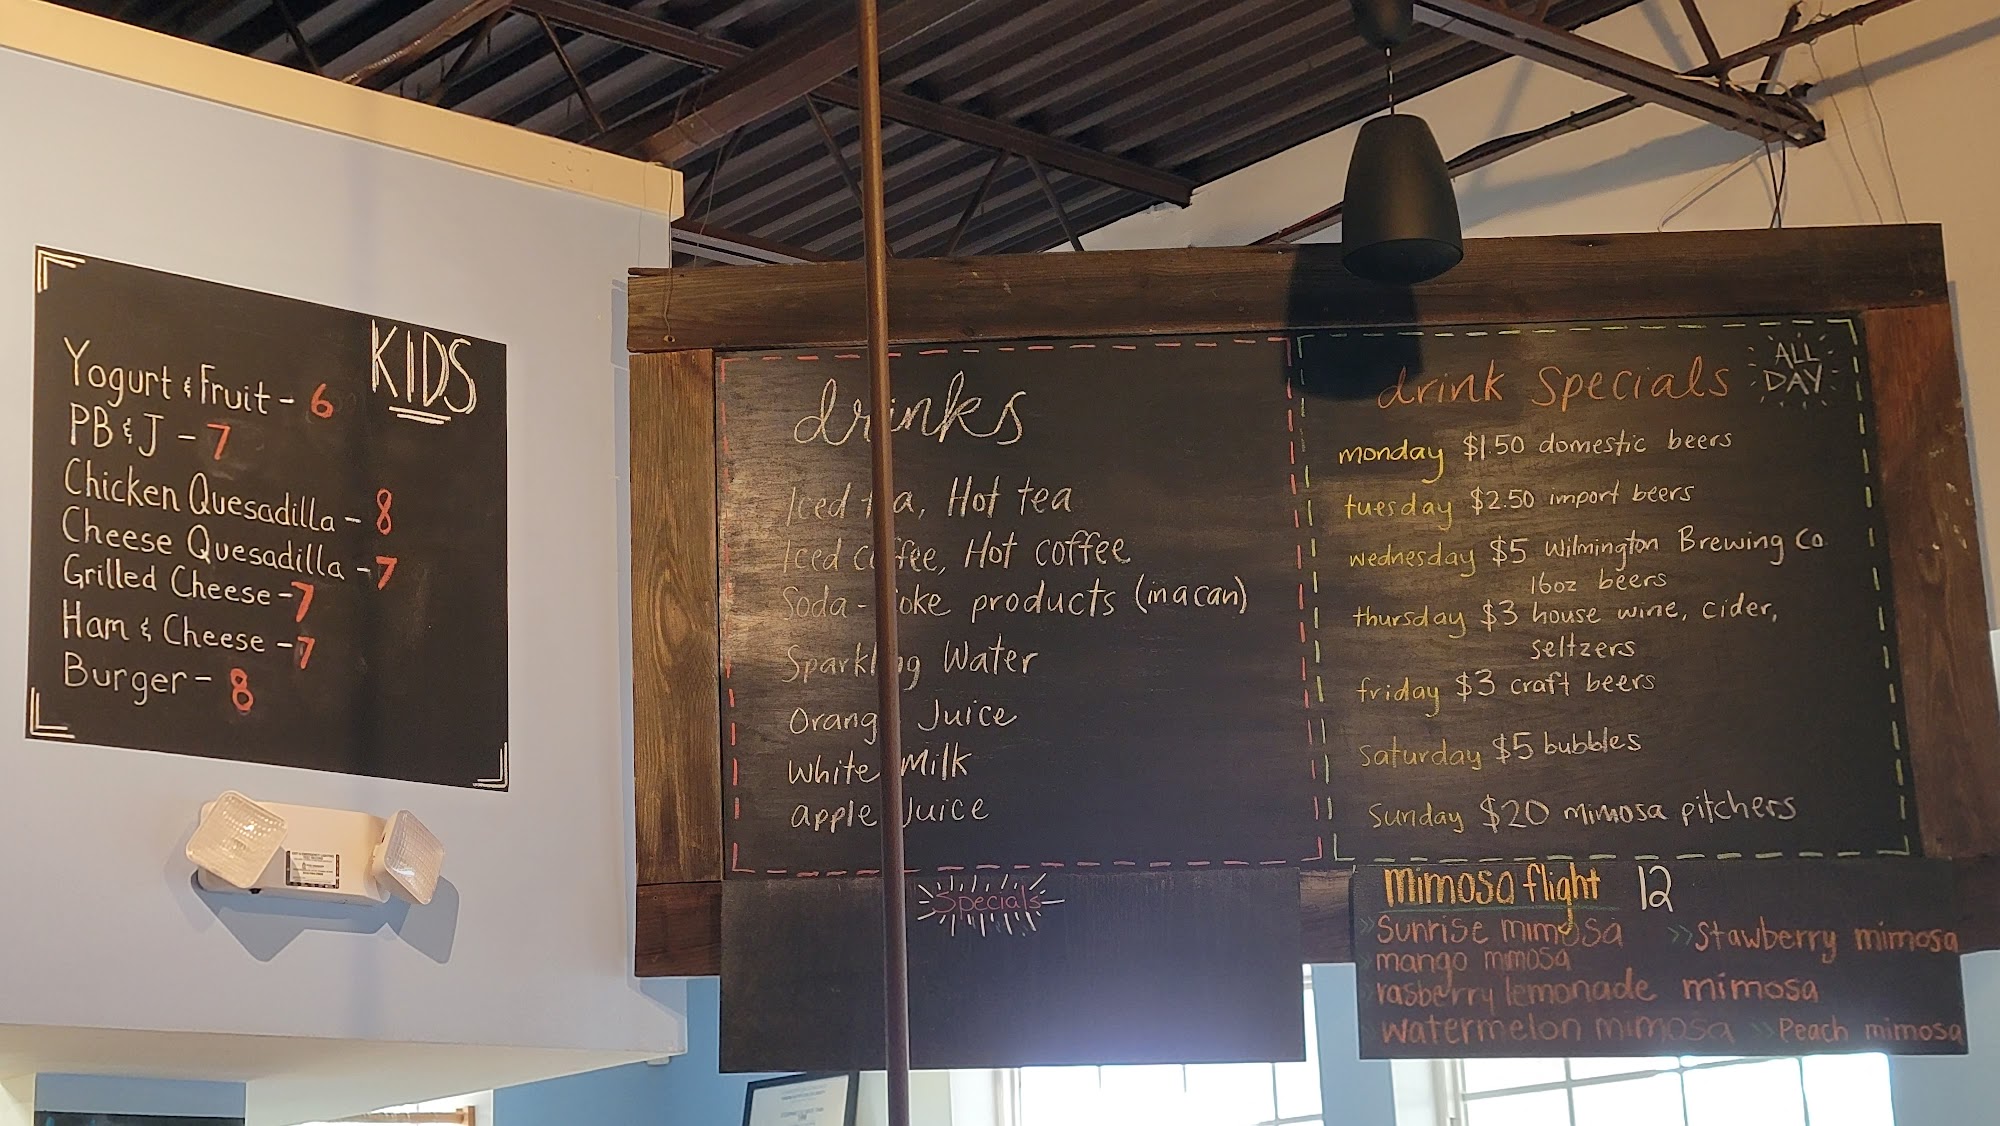 KIDS
Yogurt & Fruit - 6
PB & J - 7
Chicken Quesadilla - 8
Cheese Quesadilla - 7
Grilled Cheese - 7
Ham & Cheese - 7
Burger - 8
drinks
Iced tea, Hot tea
Iced coffee, Hot coffee
Soda - Coke products (in a can)
Sparkling Water
Orange Juice
White Milk
apple Juice
Specials
drink Specials
ALL
DAY
monday $1.50 domestic beers
tuesday $2.50 import beers
wednesday $5 Wilmington Brewing Co
16oz beers
thursday $3 house wine, cider,
seltzers
friday $3 craft beers
saturday $5 bubbles
Sunday $20 mimosa pitchers
mimosa flight 12
>> Sunrise mimosa >> Stawberry mimosa
>> mango mimosa
>> rasberry lemonade mimosa
>> watermelon mimosa >> Peach mimosa